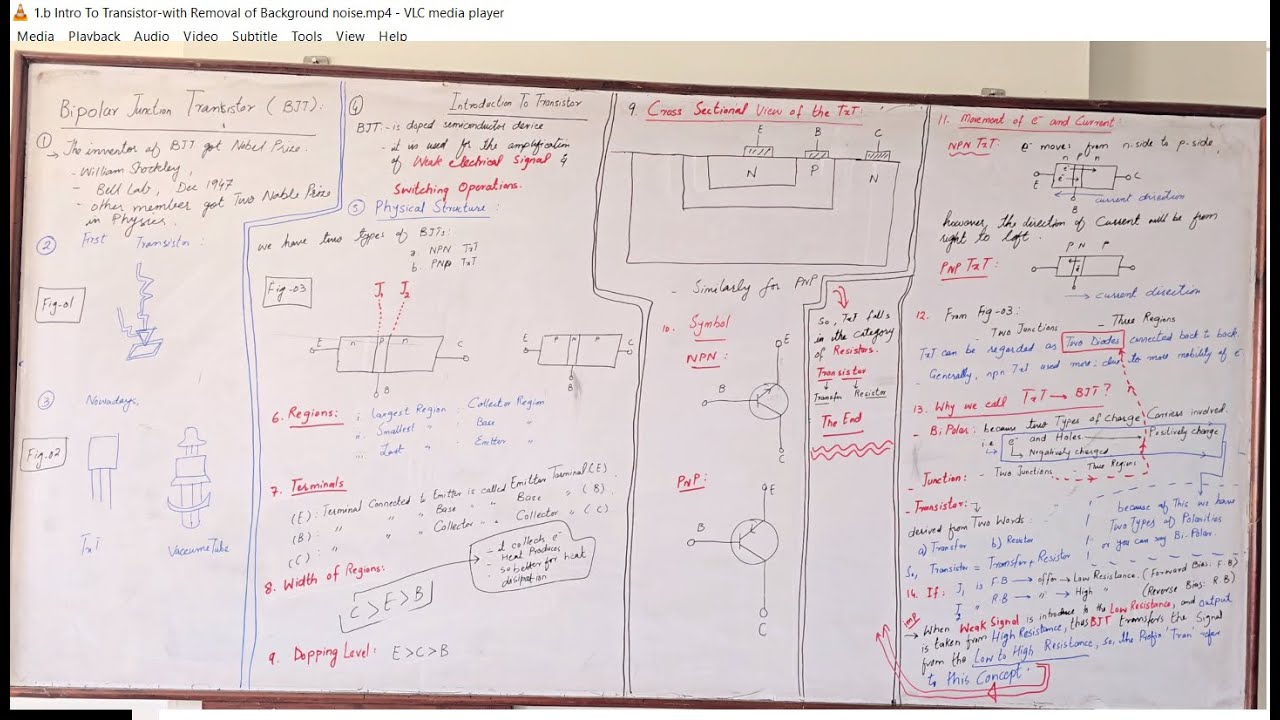 1.b Intro To Transistor-with Removal of Background noise.mp4 - VLC media player
Media Playback Audio Video Subtitle Tools View Help
Bipolar Junction Transistor (BJT):
1
→ The inventor of BJT got Nobel Prize.
- William Shockley,
- Bell Lab, Dec 1947
- other member got Two Noble Prize
in Physics.
2 First Transistor:
Fig-01
3 Nowadays,
Fig-02
TxT
VaccumeTube
4 Introduction To Transistor
BJT:- is doped semiconductor device
- it is used for the amplification
of Weak electrical Signal &
Switching Operations.
5 Physical Structure:
we have two types of BJTs:
a. NPN TxT
b. PNP TxT
Fig-03
J1 J2
E n P n C
B
E P n P C
B
6. Regions: i, Largest Region : Collector Region
ii, Smallest " : Base "
iii, Last " : Emitter "
7. Terminals
(E) : Terminal Connected to Emitter is called Emitter Terminal (E)
(B) : " " " Base " " Base " (B).
(C) : " " " Collector " " Collector " (C).
8. Width of Regions:
C > E > B
- it collects e-
- Heat Produces
- so better for heat
dissipation
9. Dopping Level: E > C > B
9. Cross Sectional View of the TxT:
E B C
N P N
- Similarly for PNP
10. Symbol
NPN:
E
B
C
PNP:
E
B
C
So, TxT falls
in the category
of Resistors.
Transistor
↓ ↓
Transfer Resistor
- The End
11. Movement of e- and Current:
NPN TxT: e- moves from n-side to p-side,
n P n
E e- e- C
B
← current direction
however the direction of Current will be from
right to left.
P N P
PNP TxT:
→ current direction
12. From Fig-03:
- Two Junctions - Three Regions
TxT can be regarded as Two Diodes connected back to back.
- Generally, npn TxT used more; due to more mobility of e-
13. Why we call TxT → BJT?
- Bi Polar: because two Types of charge Carriers involved.
i.e e- and Holes → Positively charge
↳ Negatively charged
- Junction: - Two Junctions - Three Regions
- Transistor: ↓
derived from Two Words:
a) Transfer b) Resistor
So, Transistor = Transfer + Resistor
because of This we have
Two Types of Polarities
or you can say Bi-Polar.
14. If: J1 is F.B → offer → Low Resistance. (Forward Bias: F.B)
J2 " R.B → " → High " (Reverse Bias: R.B)
imp
→ When Weak Signal is introduce to the Low Resistance, and output
is taken from High Resistance, thus BJT transfers the Signal
from the Low to High Resistance, so, the Prefix 'Tran' refer
to this Concept.